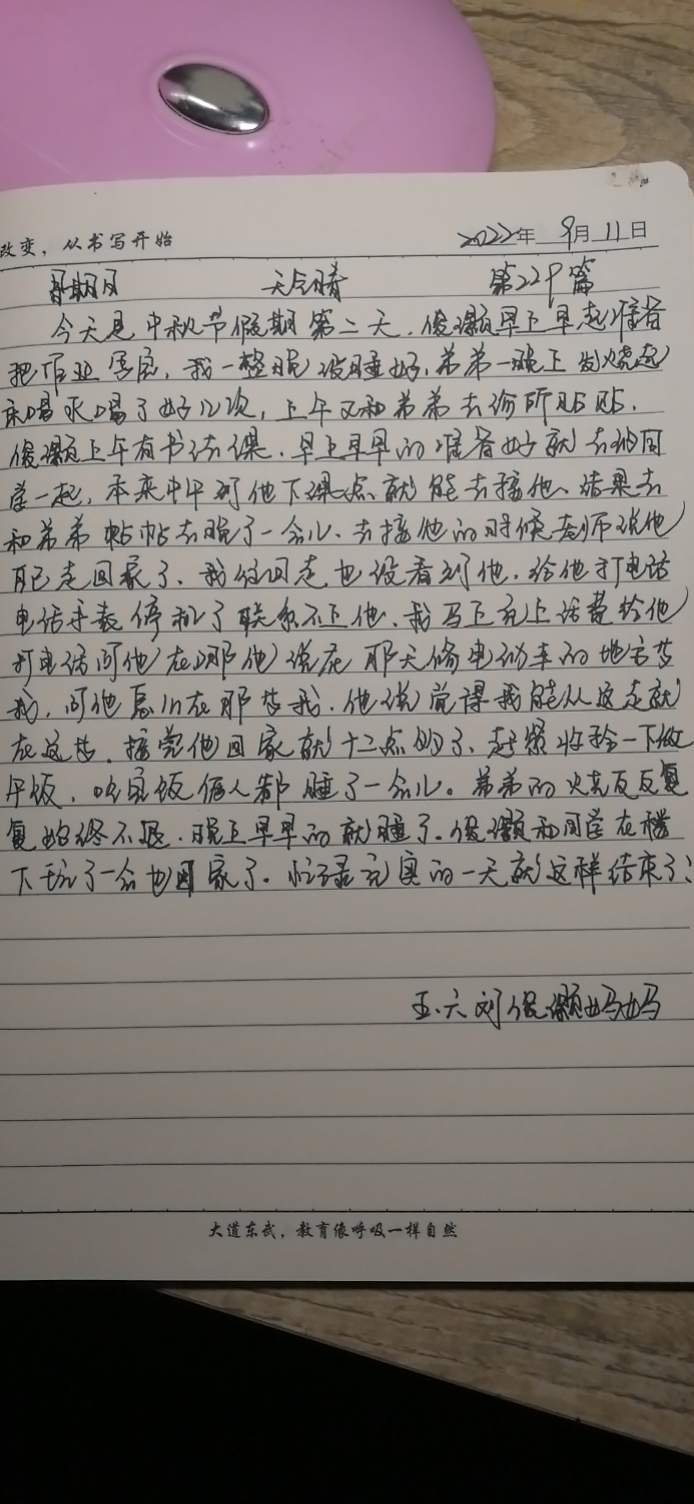 改变，从书写开始 2022年 9月 11日
星期日 天气晴 第229篇
今天是中秋节假期第二天，俊灏早上早起准备
把作业写完，我一整晚没睡好，弟弟一晚上发烧起
来喝水喝了好几次，上午又和弟弟去诊所贴贴，
俊灏上午有书法课，早上早早的准备好就去和同
学一起，本来中午到他下课点就能去接他、结果去
和弟弟帖帖去晚了一会儿、去接他的时候老师说他
自己走回家了、我往回走也没看到他，给他打电话
电话手表停机了联系不上他、我马上充上话费给他
打电话问他在哪他说在那天修电动车的地方等
我，问他怎么在那等我，他说觉得我能从这走就
在这等，接完他回家就十二点多了、赶紧收拾一下做
午饭，吃完饭俩人都睡了一会儿。弟弟的烧反反复
复始终不退，晚上早早的就睡了。俊灏和同学在楼
下玩了一会也回家了。忙碌充实的一天就这样结束了！
五.六刘俊灏妈妈
大道东武，教育像呼吸一样自然